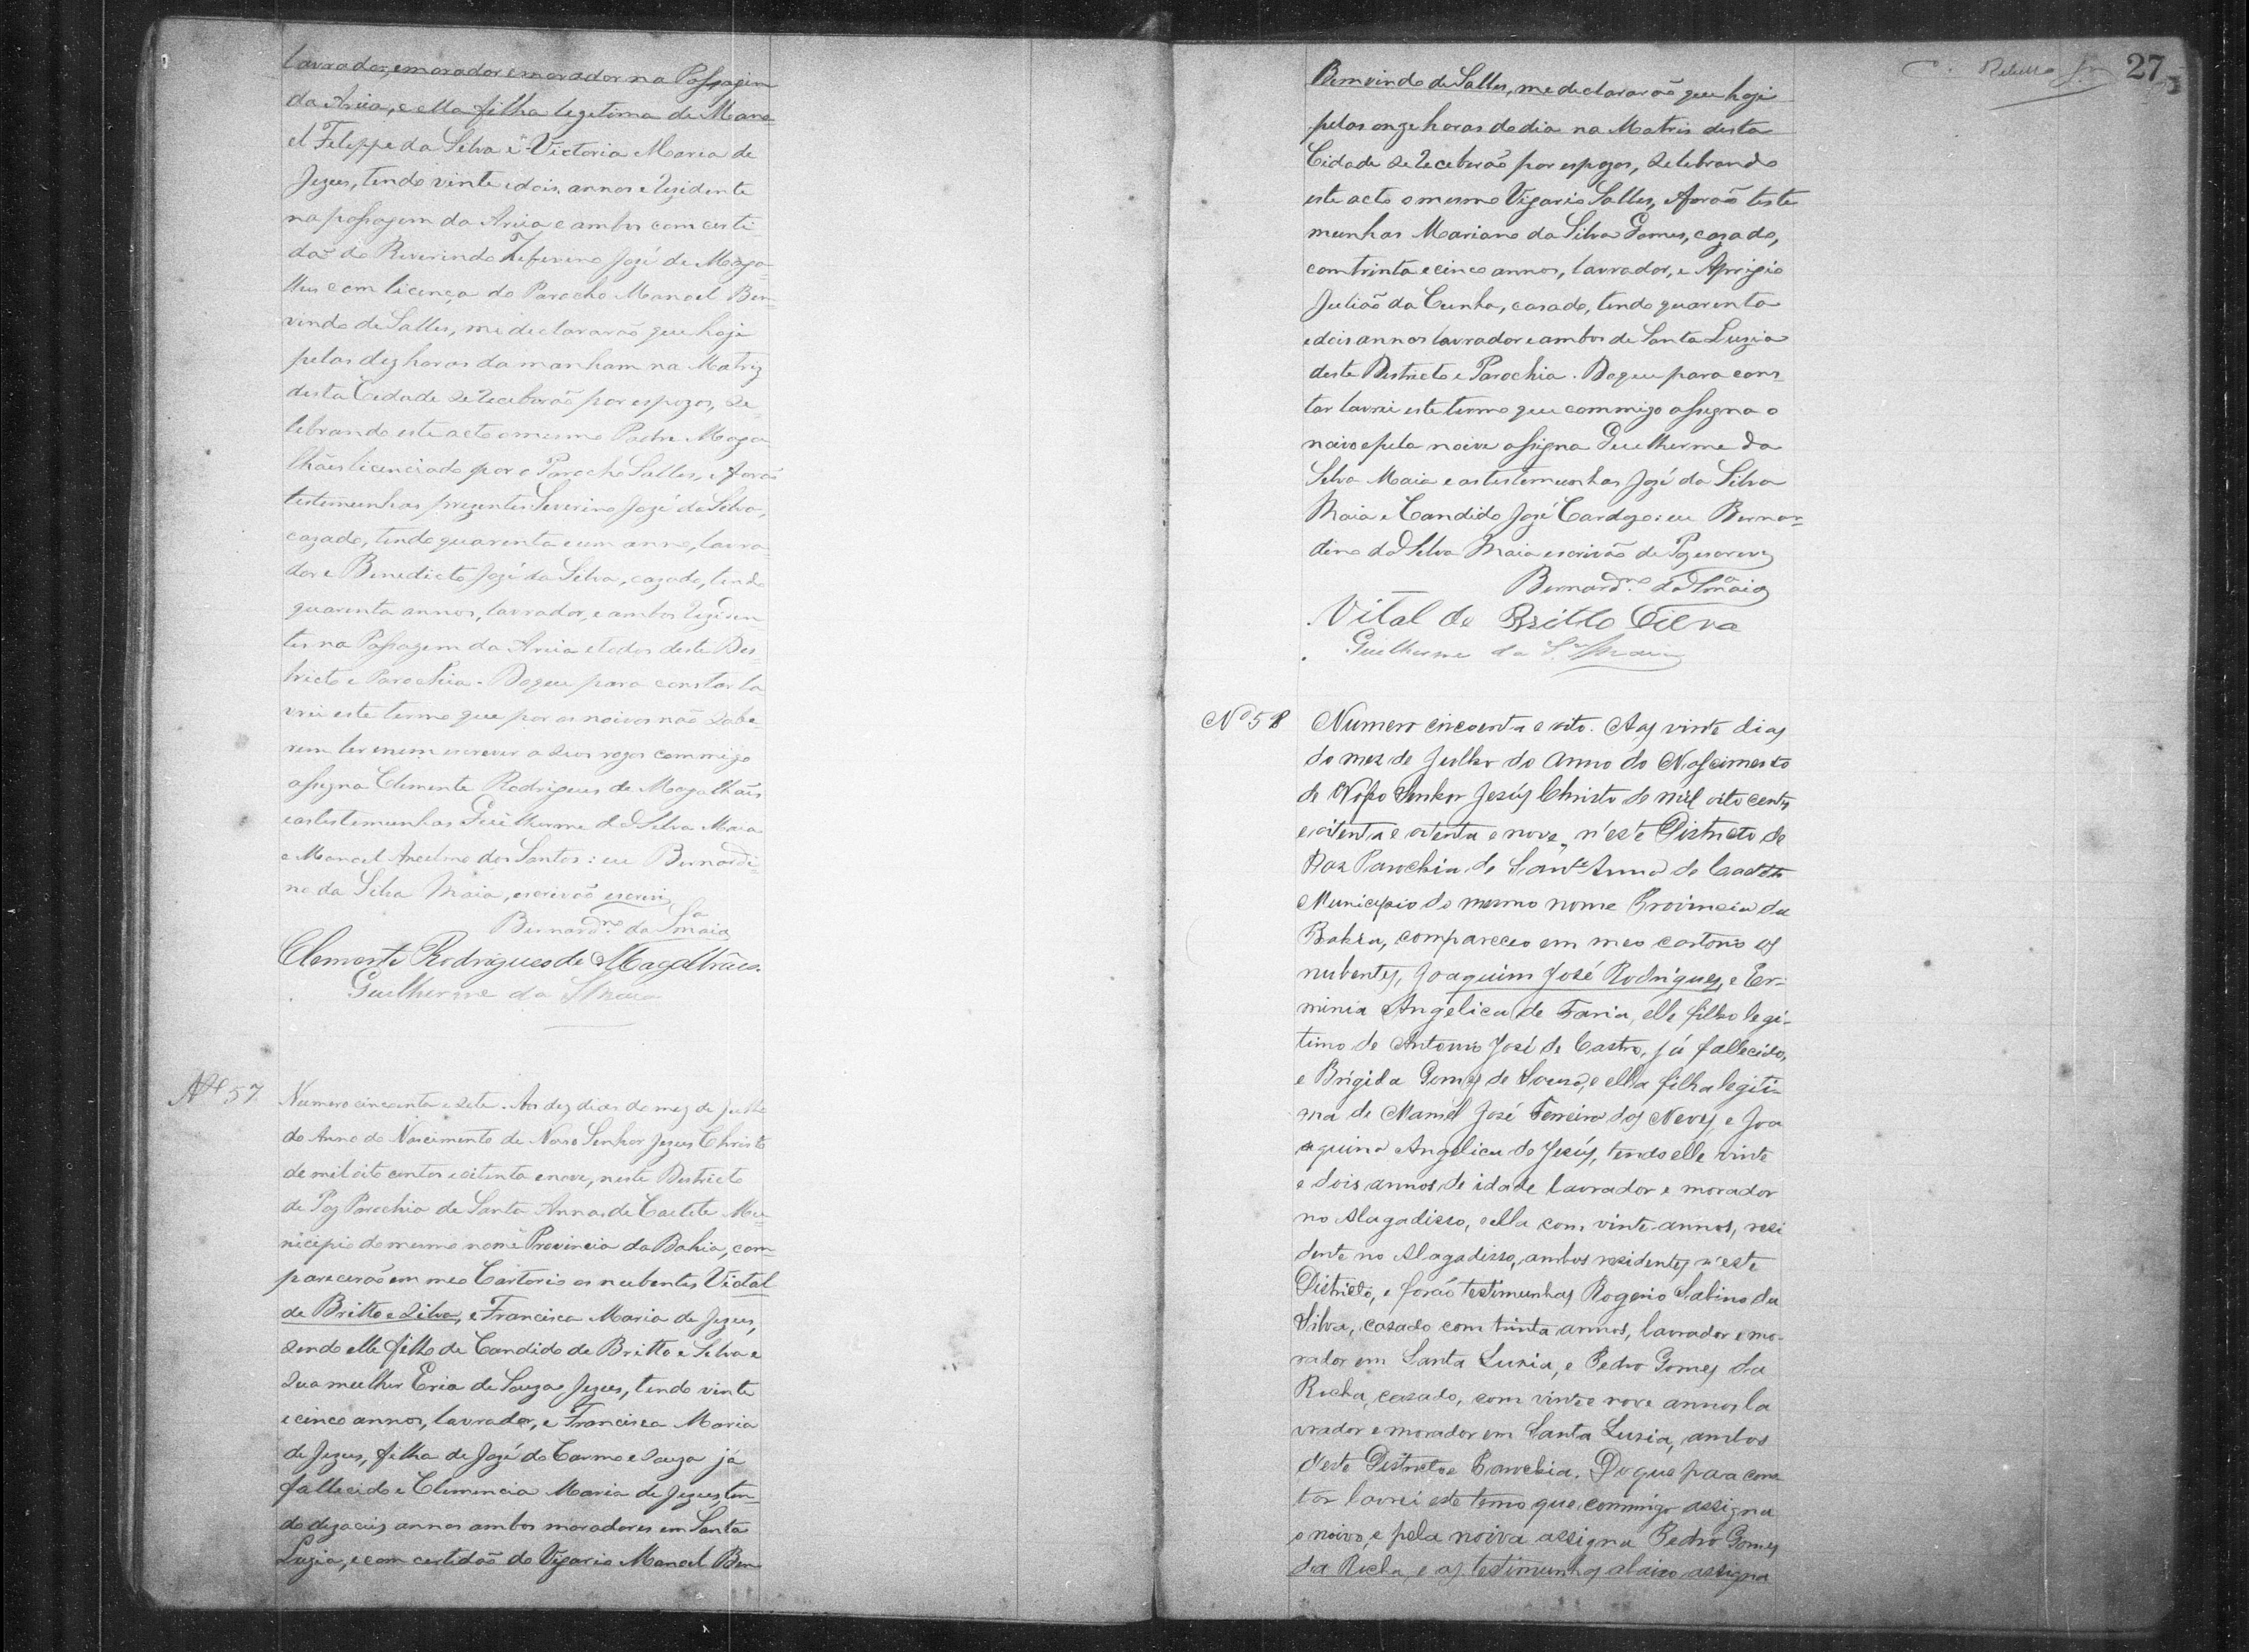 lavrador, e morador e morador na Passagem
da Areia, e ella filha legitima de Mano-
el Felippe da Silva e Victoria Maria de
Jezus, tendo vinte e dois annos e rezidente
na passagem da Areia e ambos com certi-
dão do Reverindo Zeferino Jozé de Maga-
lhes com licença do Parocho Manoel Bem-
vindo de Salles, me declararão que hoje
pelas dez horas da manham na Matriz
desta Cidade se receberão por espozos, se-
lebrando este acto o mesmo Padre Maga-
lhães licenciado por o Parocho Salles, e forão
testemunhas prezentes Severino Jozé da Silva,
cazado, tendo quarenta e um anno, lavra-
dor e Benedicto Jozé da Silva, cazado, tendo
quarenta annos, lavrador, e ambos reziden-
tes na Passagem da Areia e todos deste Des-
tricto e Parochia. Do que para constar la-
vrei este termo que por os noivos não sabe-
rem ler enem escrever a seus rogos commigo
assigna Clemente Rodrigues de Magalhães
e as testemunhas Guilherme da Silva Maia
e Manoel Ancelmo dos Santos: eu Bernardi-
no da Silva Maia, escrivão escrevi
Bernard.no da S.a Maia
Clemente Rodrigues de Magalhães.
Guilherme da S Maia
Nº 57
Numero cincoenta e sete. Aos dez dias do mez de Julho
do Anno do Nascimento de Nosso Senhor Jezus Christo
de mil oito centos e oitenta e nove, neste Destricto
de Paz Parochia de Santa Anna de Caetite Mu-
nicipio do mesmo nome Provincia da Bahia, com-
parecerão em meo Cartorio os nubentes Viotal
de Britto e Silva, e Francisca Maria de Jezus,
sendo elle filho de Candido de Britto e Silva e
sua mulher Eria de Souza Jezus, tendo vinte
e cinco annos, lavrador, e Francisca Maria
de Jezus, filha de Jozé do Carmo e Souza já
fallecido e Clemencia Maria de Jezus, ten-
do dezaceis annos ambos moradores em Santa
Luzia, e com certidão do Vigario Manoel Bem
27
Bemvindo de Salles, me declararão que hoje
pelas onze horas do dia na Matris desta
Cidade se receberão por espozos, selebrando
este acto o mesmo Vigario Salles, e forão teste
munhas Mariano da Silva Gomes, cazado,
com trinta e cinco annos, lavrador, e Aprigio
Julião da Cunha, casado, tendo quarenta
e dois annos lavrador e ambos de Santa Luzia
deste Destricto e Parochia. Do que para cons-
tar lavrei este termo que commigo assigna o
noivo e pela noiva assigna Guilherme da
Silva Maia e as testemunhas Jozé da Silva
Maia e Candido Jozé Cardozo: eu Bernar-
dino da Silva Maia escrivão de Paz escrevi
Bernard.no da S.a Maia
Vital de Britto Cilva
Guilherme da S.a Maia
Nº 58
Numero cincoenta e oito. Aos vinte dias
do mez de Julho do anno do Nascimento
de Nosso Senhor Jesús Christo de mil oito centos
e oitenta e oitenta e nove, n'este Districto de
Paz Parochia de Sant'Anna de Caeteté
Municipio do mesmo nome Provincia da
Bahia, compareceo em meo cartorio os
nubentes, Joaquim José Rodrigues, e Er-
minia Angelica de Faria, elle filho legi-
timo de Antonio José de Castro, já fallecido,
e Brigida Gomes de Souza, e ella filha legiti-
ma de Manoel José Ferreira dos Neves e Joa
aquina Angelica de Jesús, tendo elle vinte
e dois annos de idade lavrador e morador
no Alagadisso, e ella com vinte annos, resi
dente no Alagadisso, ambos residentes n'este
Districto, e forão testimunhas Rogerio Sabino da
Silva, casado com trinta annos, lavrador e mo-
rador em Santa Lusia, e Pedro Gomes da
Rocha, casado, com vinte e nove annos la
vrador e morador em Santa Lusia, ambos
d'este Districto e Parochia. Do que para cons
tar lavrei este termo que commigo assigna
o noivo, e pela noiva assigna Pedro Gomes
da Rocha, e as testimunhas abaixo assigna